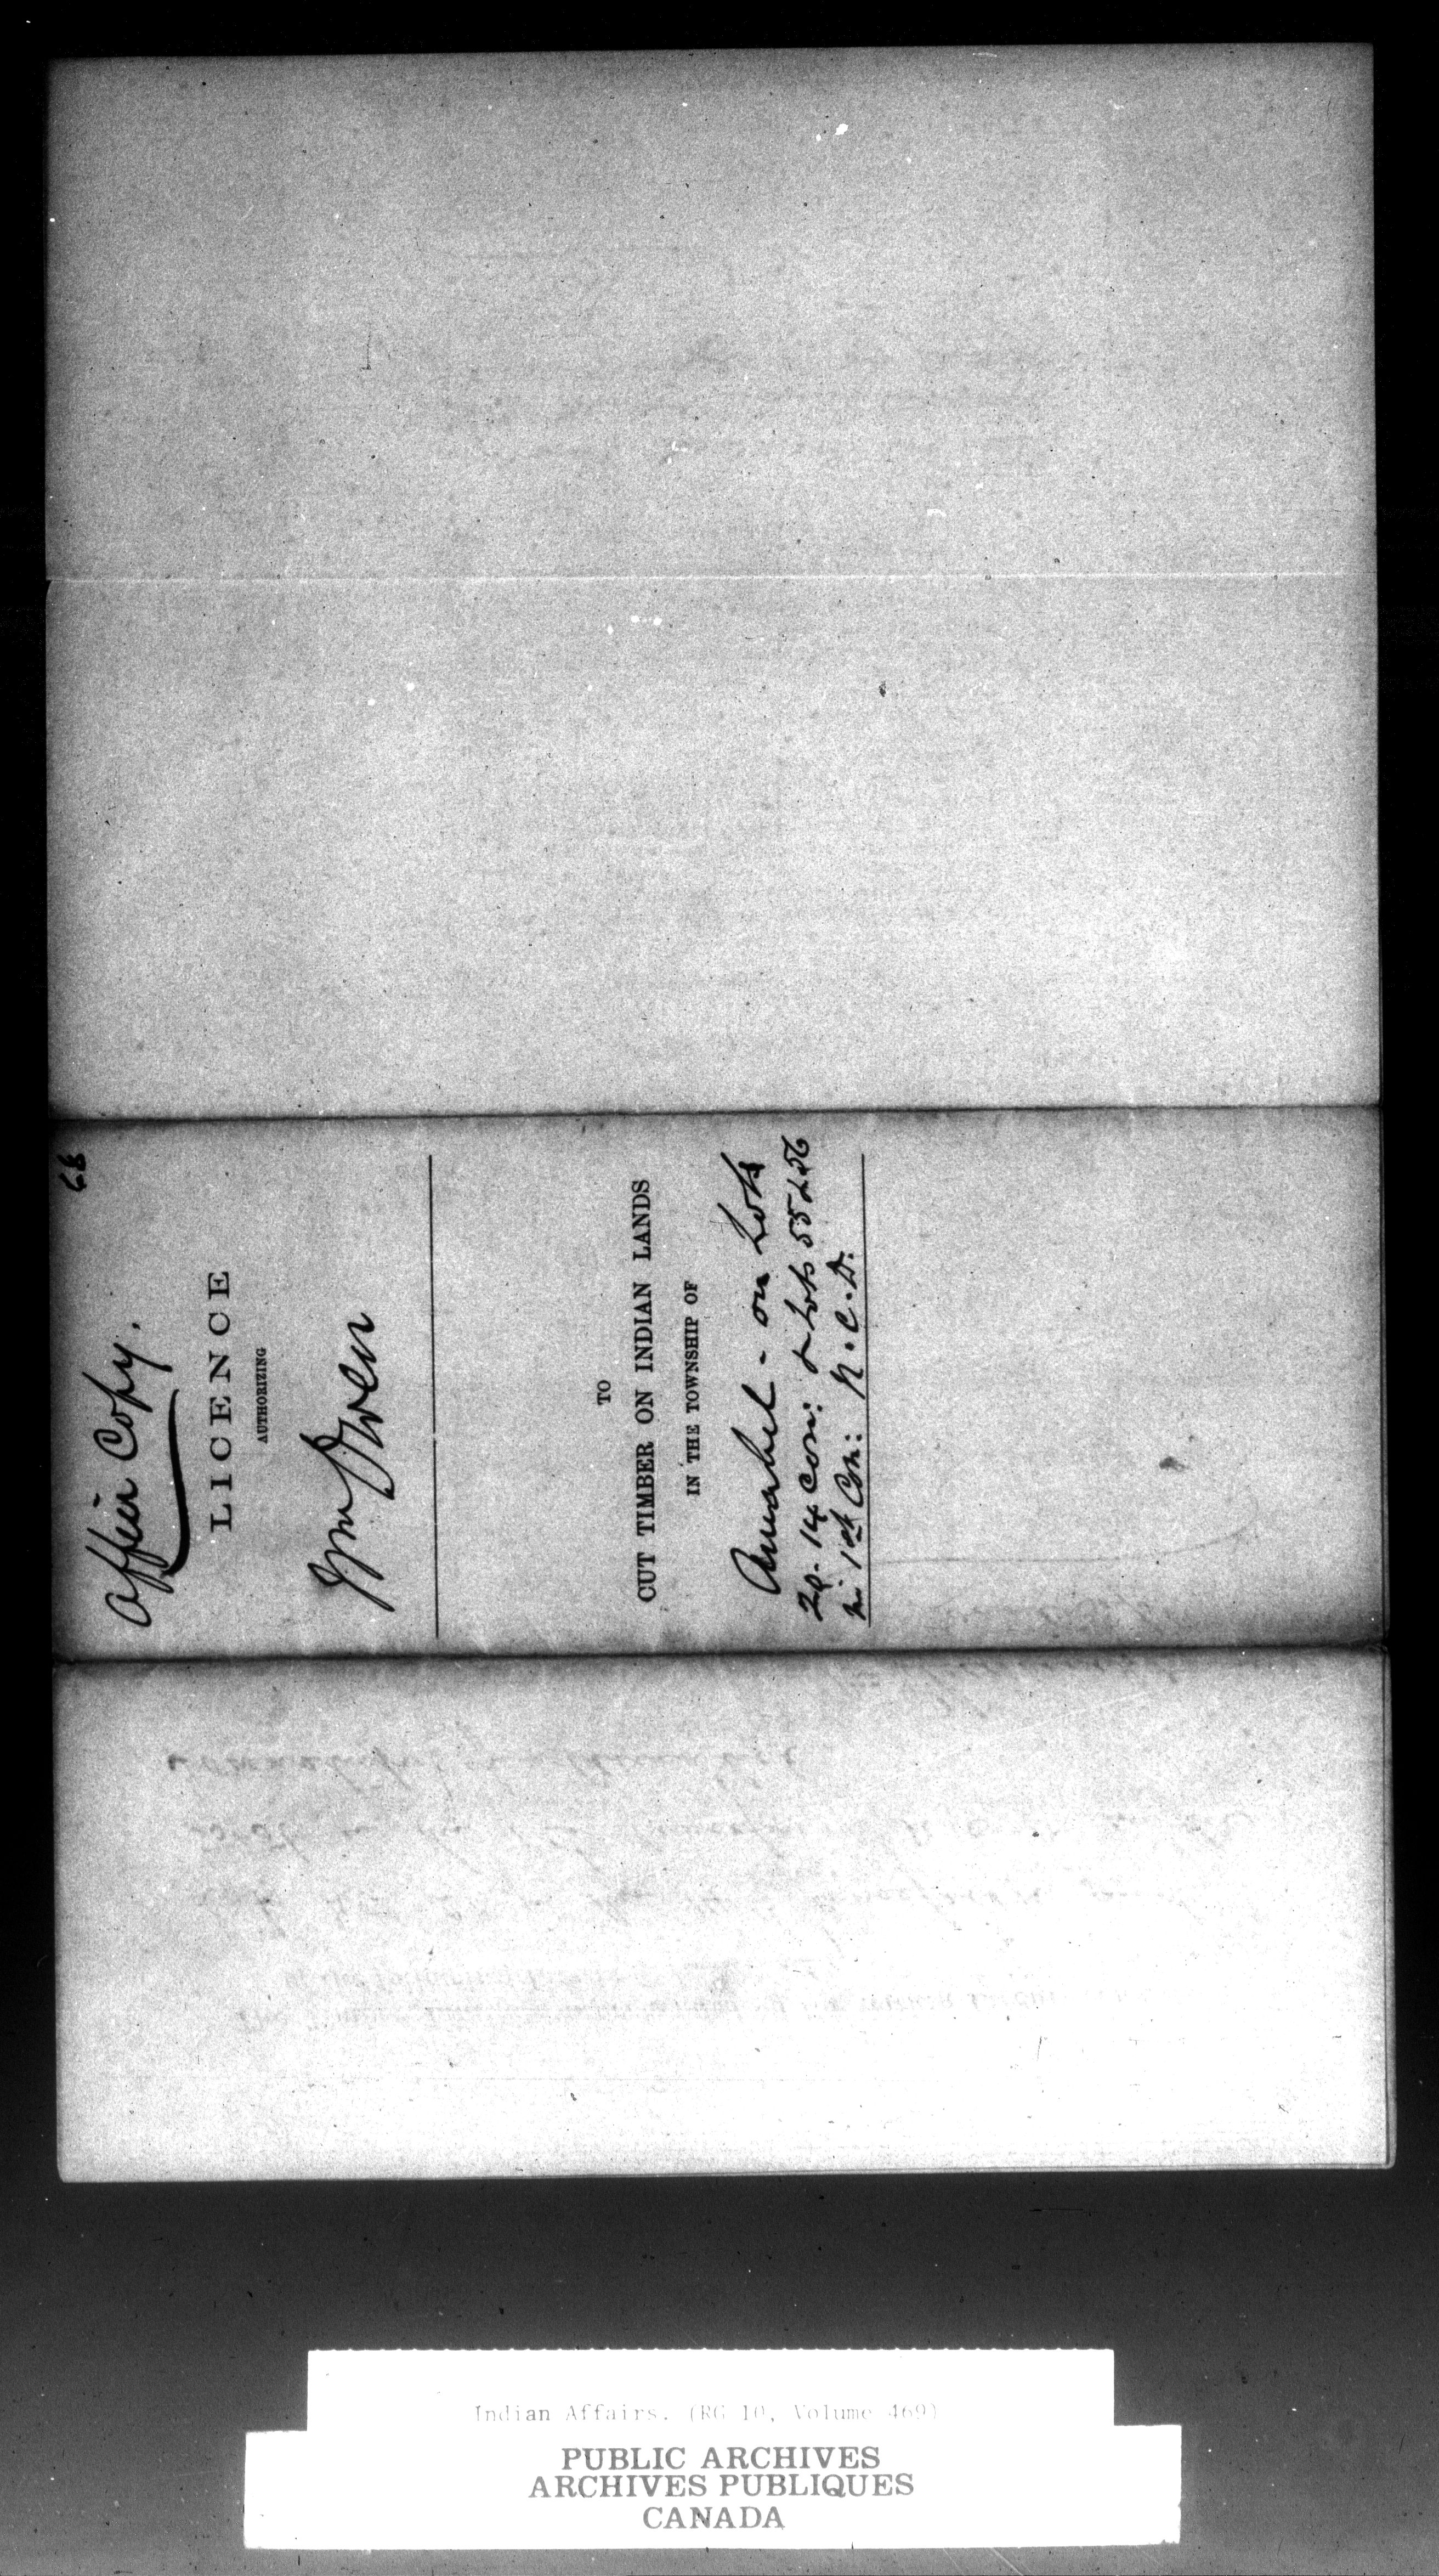 68
Office Copy.
LICENCE
AUTHORIZING
Wm Owen
TO
CUT TIMBER ON INDIAN LANDS
IN THE TOWNSHIP OF
Amabel - on Lots
20. 14 Con: & Lots 55 & 56
in 1st Con: N. C. D.
Indian Affairs. (RG 10, Volume 469)
PUBLIC ARCHIVES
ARCHIVES PUBLIQUES
CANADA